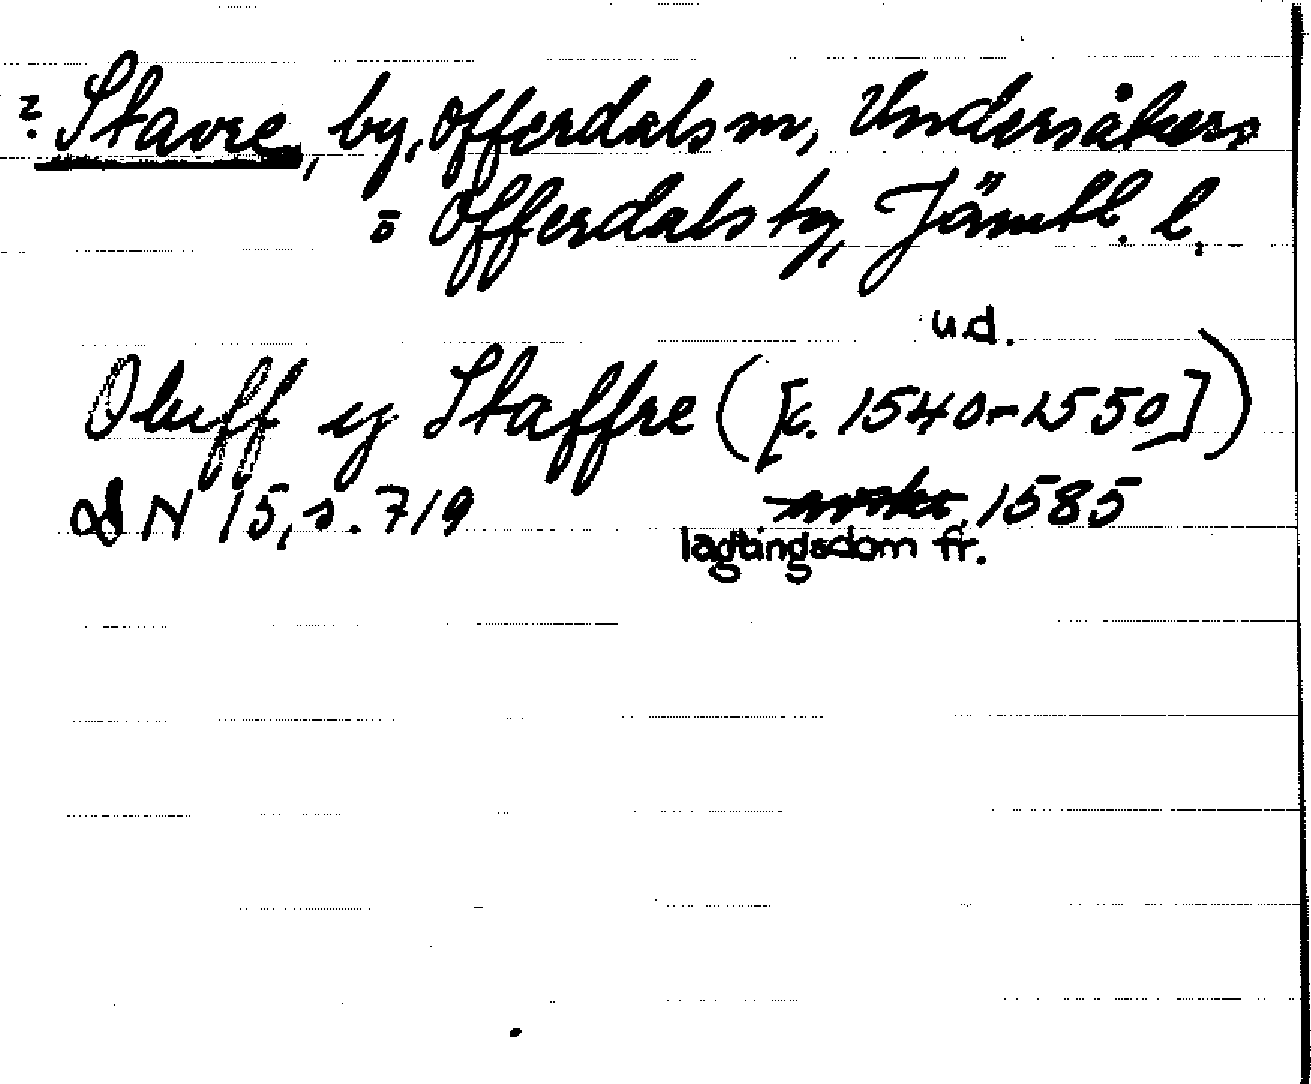 ? Stavre, by, Offerdals sn, Undersåkers
o Offerdals tg, Jämtl. l.
u.d.
Oluff y Staffre ([c. 1540-1550])
DN 15, s. 719 1585
lagtingsdom fr.